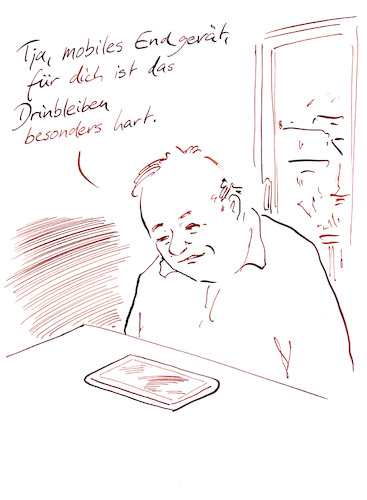 Tja, mobiles Endgerät,
für dich ist das
Drinbleiben
besonders hart.